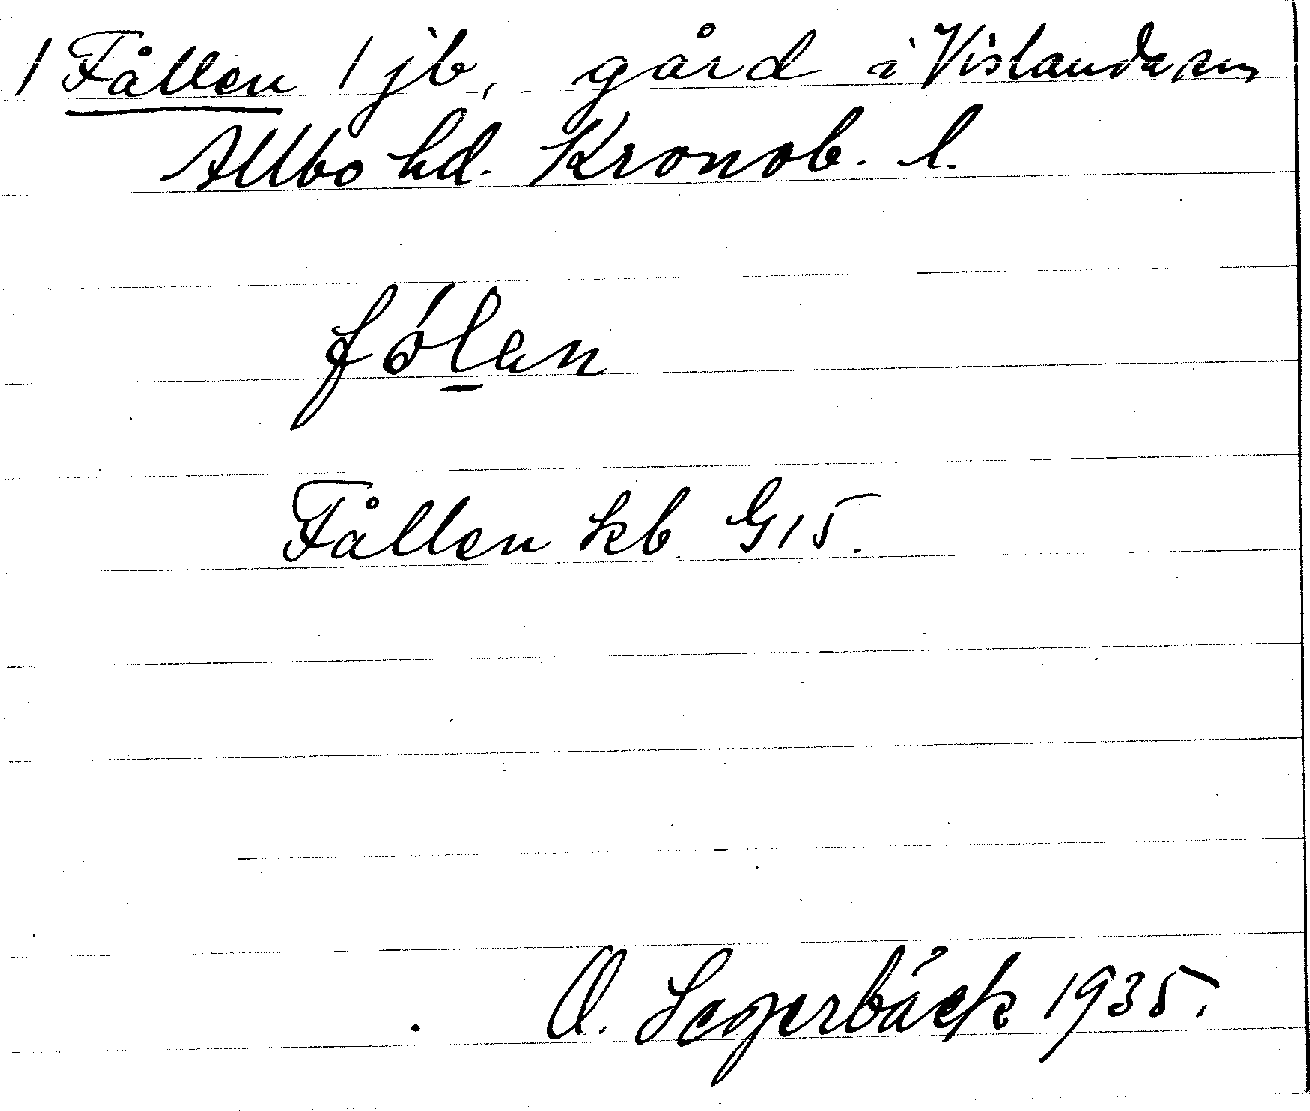 / Fållen / jb, gård i Vislanda sn
Allbo hd. Kronob. l.
fó̀lan
Fållen kb G15.
O. Segerbäck 1935.